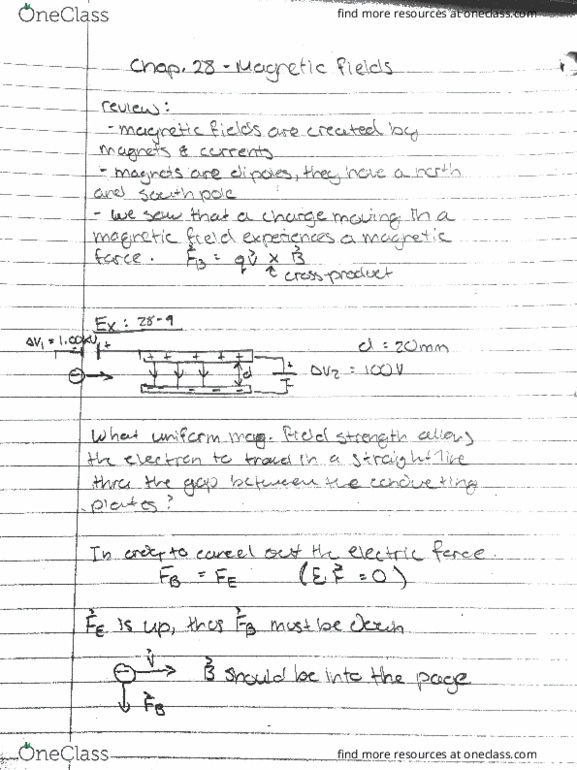 OneClass
find more resources at oneclass.com
Chap. 28 - Magnetic Fields
review:
- magnetic fields are created by
magnets & currents
- magnets are dipoles, they have a north
and south pole
- we saw that a charge moving in a
magnetic field experiences a magnetic
force. F⃗B = qv⃗ x B⃗
↑ cross-product
Ex: 28-9
ΔV1 = 1.00kV
+
d = 20mm
+ + + + +
d
+
ΔV2 = 100V
- - - -
What uniform mag. field strength allows
the electron to travel in a straight line
thru the gap between the conducting
plates?
In order to cancel out the electric force.
FB = FE (Σ F⃗ = 0)
F⃗E is up, thus F⃗B must be down
v⃗
B⃗ should be into the page
F⃗B
OneClass
find more resources at oneclass.com